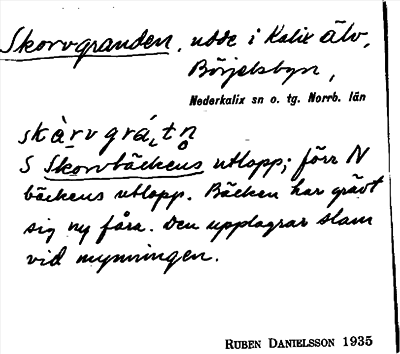 Skorvgranden, udde i Kalix älv,
Börjelsbyn,
Nederkalix sn o. tg. Norrb. län
skàrv grá, tn̥
S Skorvbäckens utlopp; förr N
bäckens utlopp. Bäcken har grävt
sig ny fåra. Den upplagrar slam
vid mynningen.
RUBEN DANIELSSON 1935